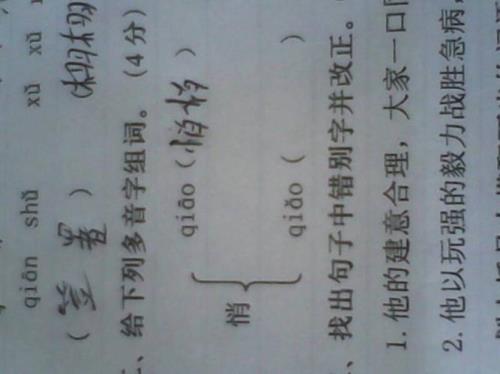 qiān shǔ xǔ xǔ
(签署) (栩栩
、给下列多音字组词。(4分)
qiāo(悄悄
悄
qiǎo( )
、找出句子中错别字并改正。
1.他的建意合理，大家一口
2.他以玩强的毅力战胜急病，